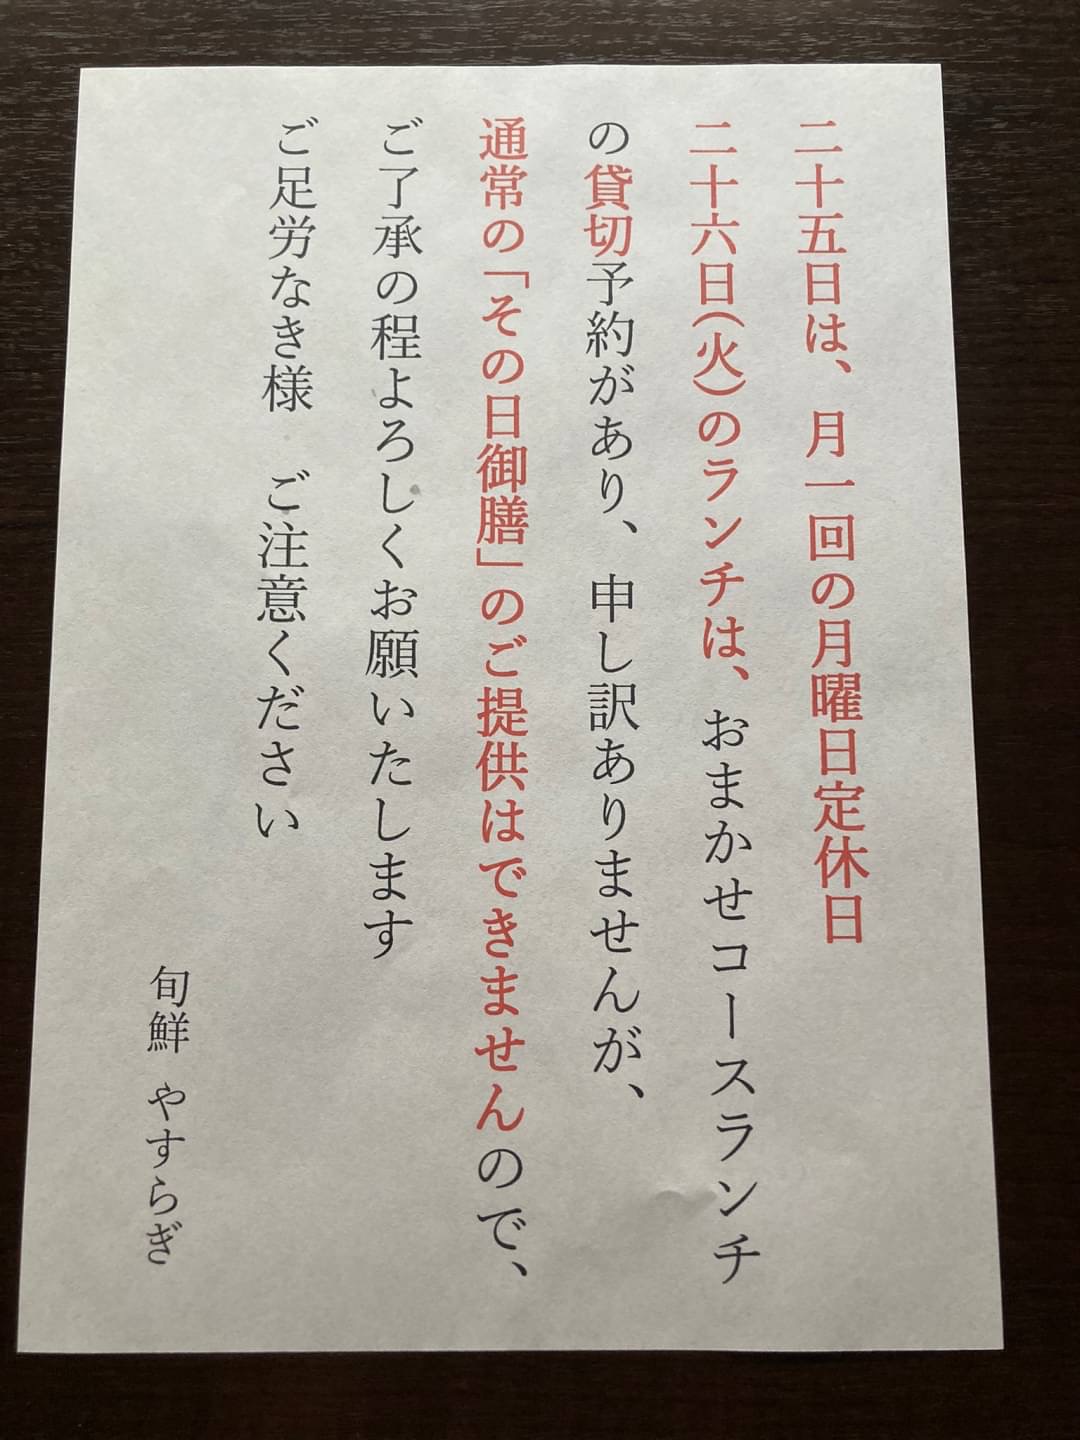 二十五日は、月一回の月曜日定休日
二十六日(火)のランチは、おまかせコースランチ
の貸切予約があり、申し訳ありませんが、
通常の「その日御膳」のご提供はできませんので、
ご了承の程よろしくお願いいたします
ご足労なき様　ご注意ください
旬鮮 やすらぎ